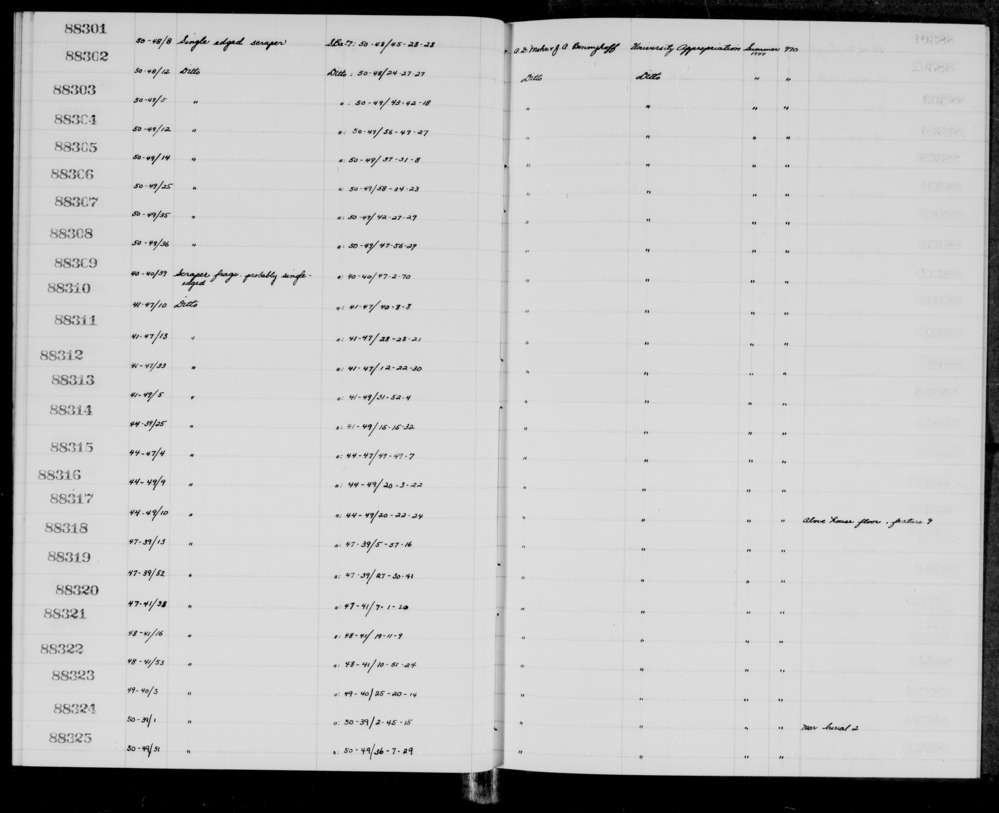 88301 50-48/8 Single edged scraper SBa-7: 50-48/45-28-23 University Appropriation Summer 970
88302 50-48/12 Ditto Ditto: 50-48/24-27-27 Ditto Ditto " "
88303 50-49/5 " ": 50-49/43-42-18 " " " "
88304 50-49/12 " ": 50-49/56-49-27 " " " "
88305 50-49/14 " ": 50-49/37-31-8 " " " "
88306 50-49/25 " ": 50-49/58-34-23 " " " "
88307 50-49/35 " ": 50-49/42-27-29 " " " "
88308 50-49/36 " ": 50-49/47-56-29 " " " "
88309 40-40/39 Scraper frags. probably single- ": 40-40/47-2-70 " " " "
edged
88310 41-47/10 Ditto ": 41-47/40-8-3 " " " "
88311 41-47/13 " ": 41-47/28-28-21 " " " "
88312 41-47/33 " ": 41-47/12-22-30 " " " "
88313 41-49/5 " ": 41-49/31-52-4 " " " "
88314 44-39/25 " ": 41-49/15-15-32 " " " "
88315 44-47/4 " ": 44-47/49-47-7 " " " "
88316 44-49/9 " ": 44-49/20-3-22 " " " "
88317 44-49/10 " ": 44-49/20-22-24 " " " " Above house floor, feature 9
88318 47-39/13 " ": 47-39/5-57-16 " " " "
88319 47-39/52 " ": 47-39/27-30-41 " " " "
88320 47-41/38 " ": 47-41/7-1-20 " " " "
88321 48-41/16 " ": 48-41/19-11-9 " " " "
88322 48-41/53 " ": 48-41/10-51-24 " " " "
88323 49-40/3 " ": 49-40/25-20-14 " " " "
88324 50-39/1 " ": 50-39/2-45-15 " " " " Near burial 2
88325 50-49/31 " ": 50-49/36-7-29 " " " "